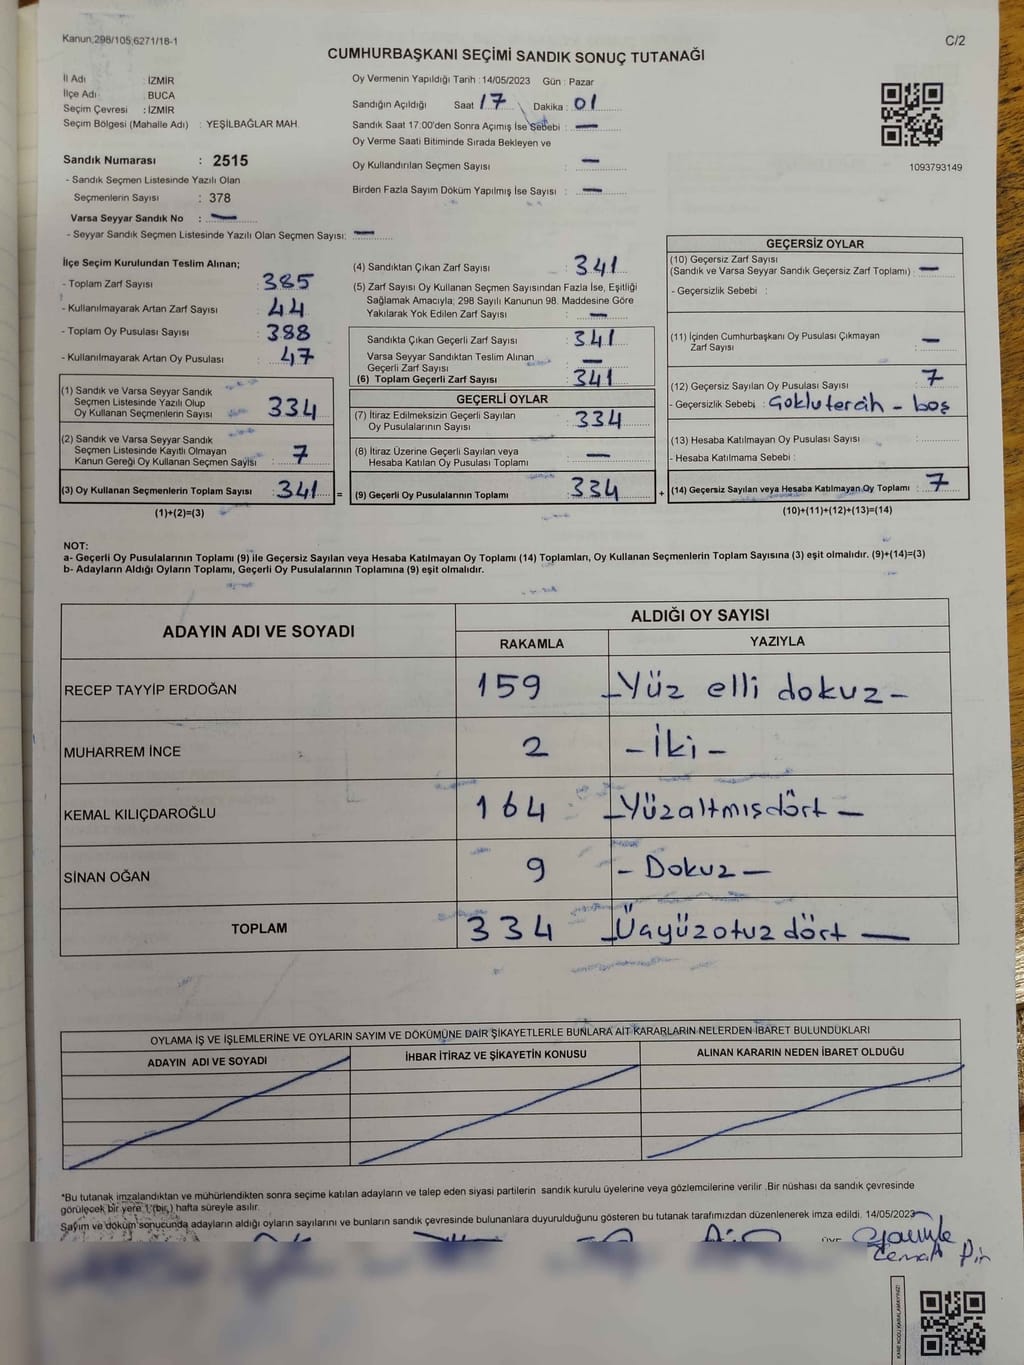 Kanun;298/105;6271/18-1
C/2
CUMHURBAŞKANI SEÇİMİ SANDIK SONUÇ TUTANAĞI
İl Adı : İZMİR
İlçe Adı : BUCA
Seçim Çevresi : İZMİR
Seçim Bölgesi (Mahalle Adı) : YEŞİLBAĞLAR MAH.
Sandık Numarası : 2515
- Sandık Seçmen Listesinde Yazılı Olan
Seçmenlerin Sayısı : 378
Varsa Seyyar Sandık No : —
- Seyyar Sandık Seçmen Listesinde Yazılı Olan Seçmen Sayısı: —
Oy Vermenin Yapıldığı Tarih : 14/05/2023 Gün : Pazar
Sandığın Açıldığı Saat 17 Dakika : 01
Sandık Saat 17:00'den Sonra Açımış İse Sebebi : —
Oy Verme Saati Bitiminde Sırada Bekleyen ve
Oy Kullandırılan Seçmen Sayısı : —
Birden Fazla Sayım Döküm Yapılmış İse Sayısı : —
1093793149
İlçe Seçim Kurulundan Teslim Alınan;
- Toplam Zarf Sayısı : 385
- Kullanılmayarak Artan Zarf Sayısı : 44
- Toplam Oy Pusulası Sayısı : 388
- Kullanılmayarak Artan Oy Pusulası : 47
(1) Sandık ve Varsa Seyyar Sandık
Seçmen Listesinde Yazılı Olup
Oy Kullanan Seçmenlerin Sayısı : 334
(2) Sandık ve Varsa Seyyar Sandık
Seçmen Listesinde Kayıtlı Olmayan
Kanun Gereği Oy Kullanan Seçmen Sayısı : 7
(3) Oy Kullanan Seçmenlerin Toplam Sayısı : 341 =
(1)+(2)=(3)
(4) Sandıktan Çıkan Zarf Sayısı : 341
(5) Zarf Sayısı Oy Kullanan Seçmen Sayısından Fazla İse, Eşitliği
Sağlamak Amacıyla; 298 Sayılı Kanunun 98. Maddesine Göre
Yakılarak Yok Edilen Zarf Sayısı : —
Sandıkta Çıkan Geçerli Zarf Sayısı : 341
Varsa Seyyar Sandıktan Teslim Alınan
Geçerli Zarf Sayısı : —
(6) Toplam Geçerli Zarf Sayısı : 341
GEÇERLİ OYLAR
(7) İtiraz Edilmeksizin Geçerli Sayılan
Oy Pusulalarının Sayısı : 334
(8) İtiraz Üzerine Geçerli Sayılan veya
Hesaba Katılan Oy Pusulası Toplamı : —
(9) Geçerli Oy Pusulalarının Toplamı : 334 +
GEÇERSİZ OYLAR
(10) Geçersiz Zarf Sayısı
(Sandık ve Varsa Seyyar Sandık Geçersiz Zarf Toplamı) : —
- Geçersizlik Sebebi :
(11) İçinden Cumhurbaşkanı Oy Pusulası Çıkmayan
Zarf Sayısı : —
(12) Geçersiz Sayılan Oy Pusulası Sayısı : 7
- Geçersizlik Sebebi : Çoklu tercih - boş
(13) Hesaba Katılmayan Oy Pusulası Sayısı :
- Hesaba Katılmama Sebebi :
(14) Geçersiz Sayılan veya Hesaba Katılmayan Oy Toplamı : 7
(10)+(11)+(12)+(13)=(14)
NOT:
a- Geçerli Oy Pusulalarının Toplamı (9) ile Geçersiz Sayılan veya Hesaba Katılmayan Oy Toplamı (14) Toplamları, Oy Kullanan Seçmenlerin Toplam Sayısına (3) eşit olmalıdır. (9)+(14)=(3)
b- Adayların Aldığı Oyların Toplamı, Geçerli Oy Pusulalarının Toplamına (9) eşit olmalıdır.
ADAYIN ADI VE SOYADI
ALDIĞI OY SAYISI
RAKAMLA YAZIYLA
RECEP TAYYİP ERDOĞAN 159 - Yüz elli dokuz -
MUHARREM İNCE 2 - İki -
KEMAL KILIÇDAROĞLU 164 - Yüzaltmışdört -
SİNAN OĞAN 9 - Dokuz -
TOPLAM 334 - Üçyüzotuz dört -
OYLAMA İŞ VE İŞLEMLERİNE VE OYLARIN SAYIM VE DÖKÜMÜNE DAİR ŞİKAYETLERLE BUNLARA AİT KARARLARIN NELERDEN İBARET BULUNDUKLARI
ADAYIN ADI VE SOYADI İHBAR İTİRAZ VE ŞİKAYETİN KONUSU ALINAN KARARIN NEDEN İBARET OLDUĞU
*Bu tutanak imzalandıktan ve mühürlendikten sonra seçime katılan adayların ve talep eden siyasi partilerin sandık kurulu üyelerine veya gözlemcilerine verilir .Bir nüshası da sandık çevresinde
görülecek bir yere 1 (bir,) hafta süreyle asılır.
Sayım ve döküm sonucunda adayların aldığı oyların sayılarını ve bunların sandık çevresinde bulunanlara duyurulduğunu gösteren bu tutanak tarafımızdan düzenlenerek imza edildi. 14/05/2023
KARE KODU KARALAMAYINIZ!